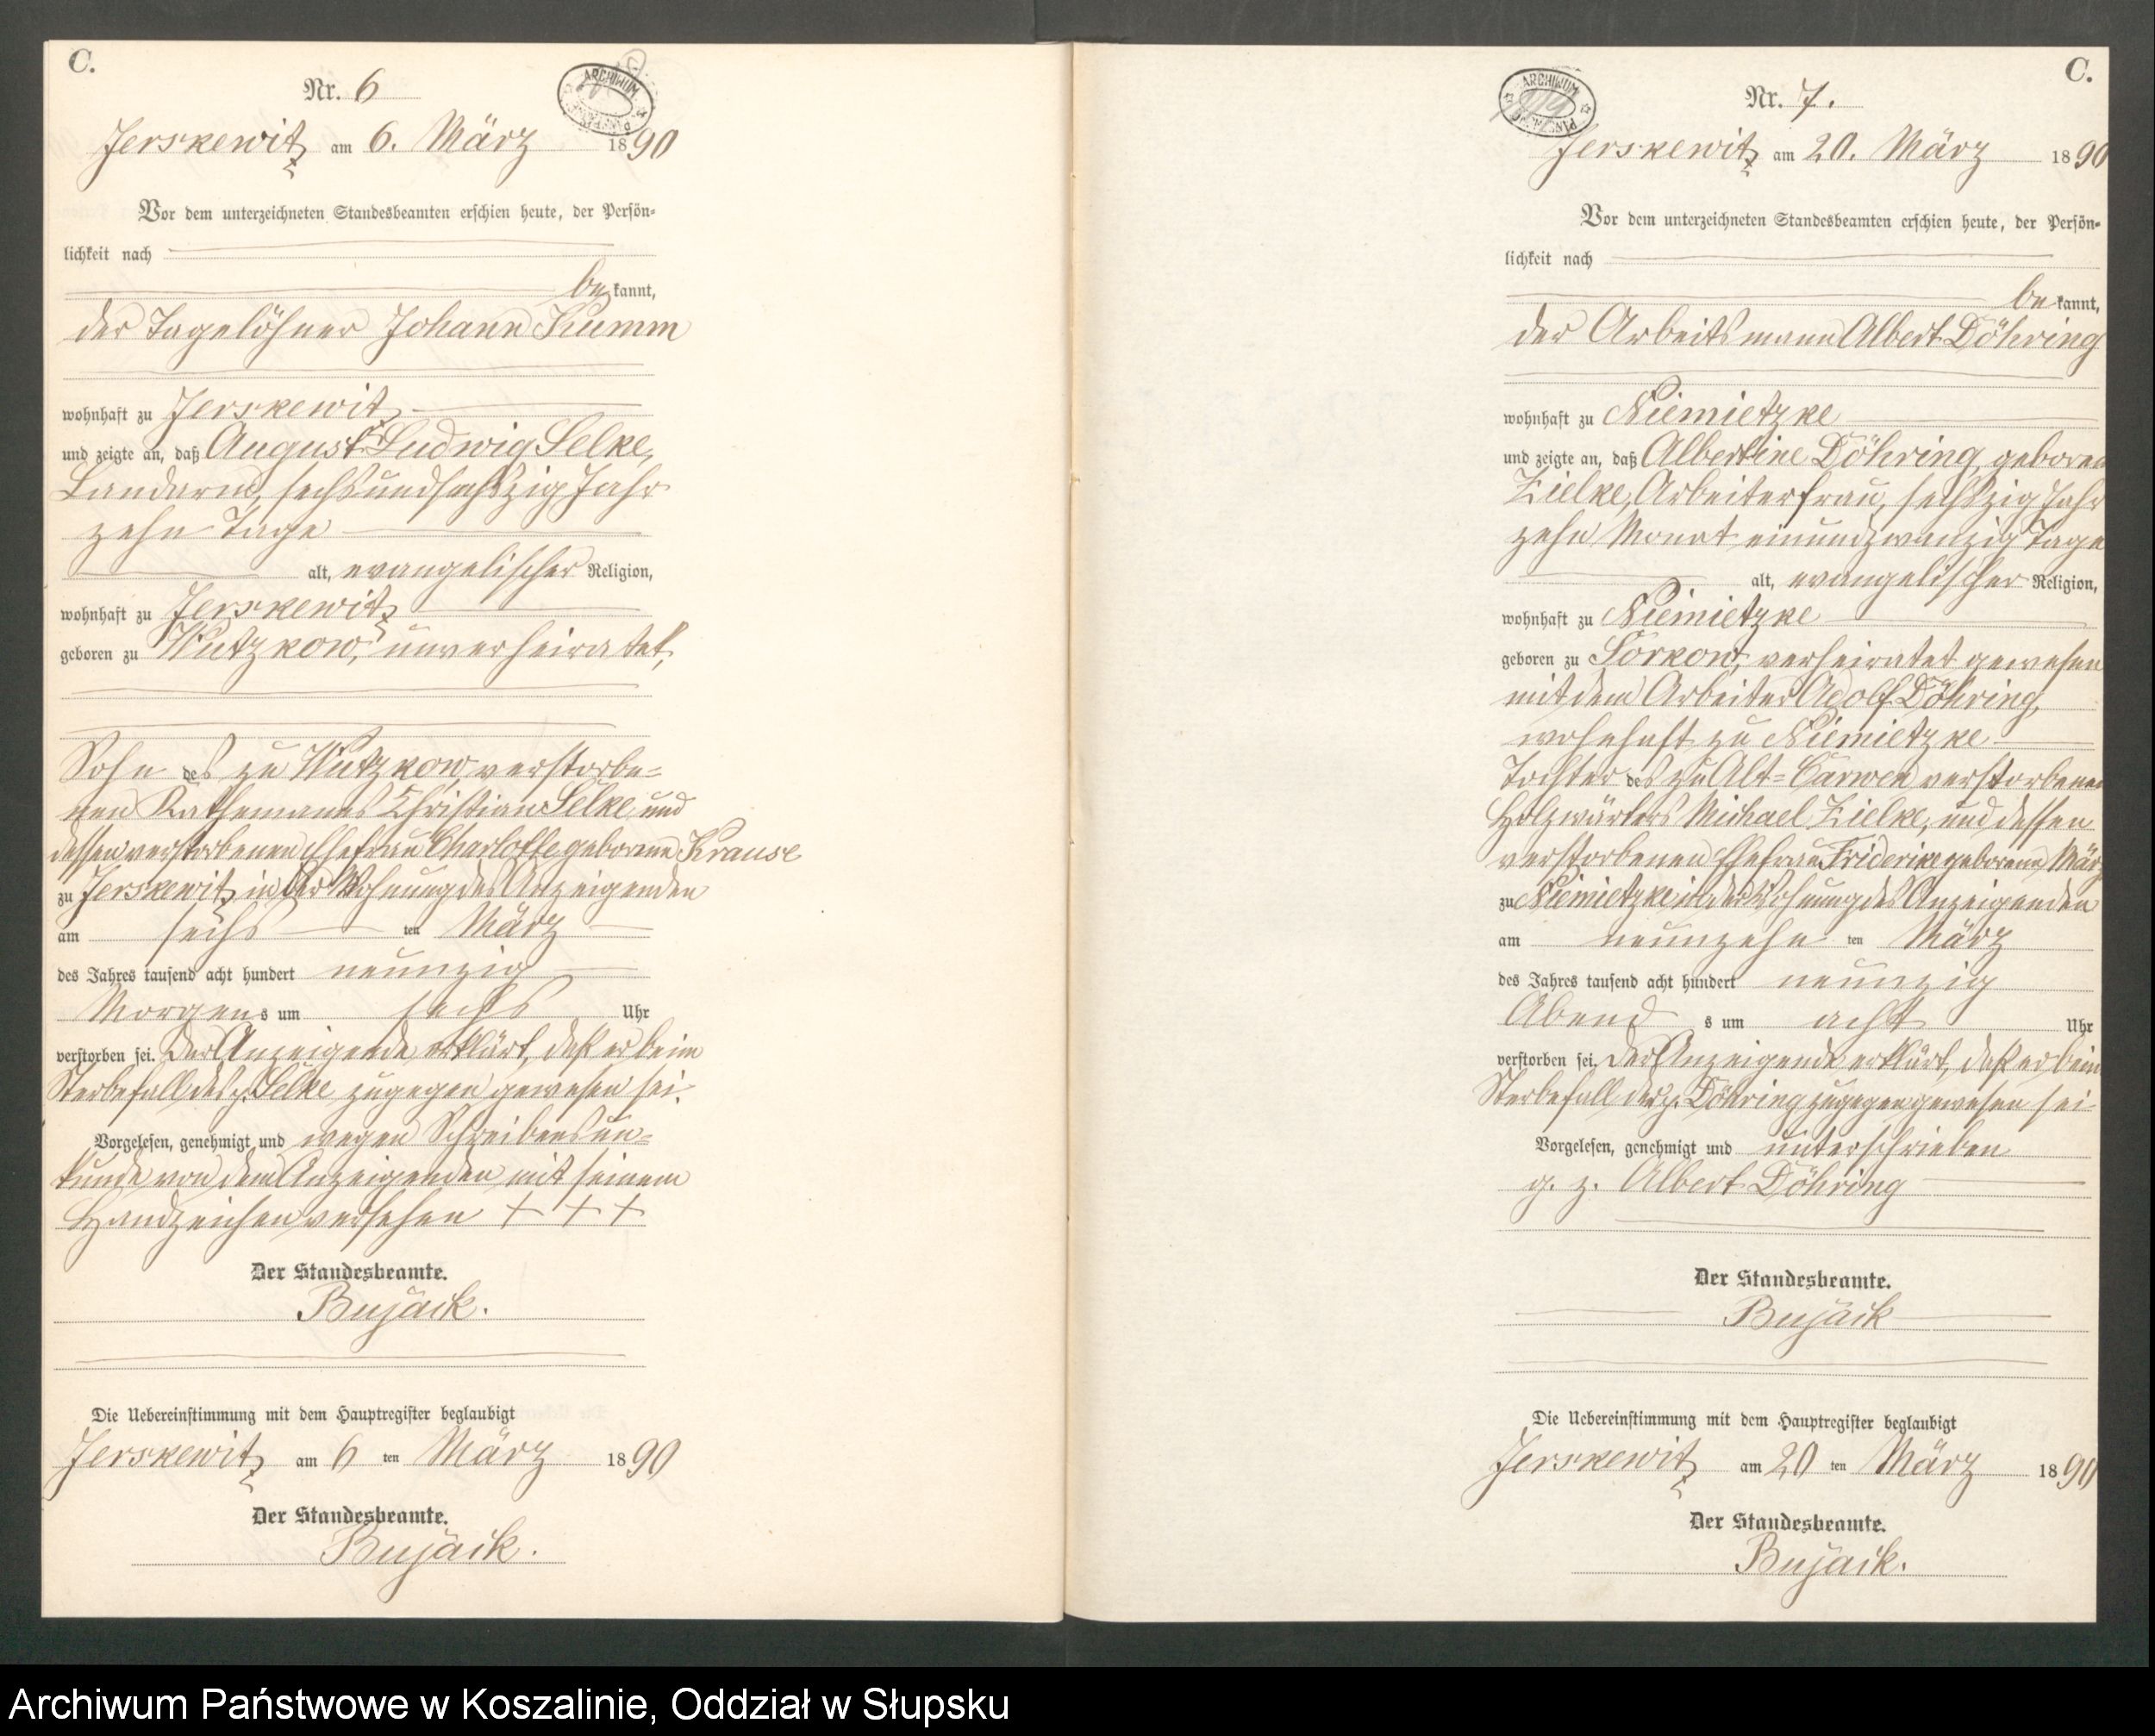 C.
Nr. 6
ARCHIWUM PAŃSTWOWE
Jerskewitz am 6. März 1890
Vor dem unterzeichneten Standesbeamten erschien heute, der Persön=
lichkeit nach
be kannt,
der Tagelöhner Johann Kumm
wohnhaft zu Jerskewitz
und zeigte an, daß August Ludwig Selke,
Landarm, sechsundsechszig Jahr
zehn Tage
alt, evangelischer Religion,
wohnhaft zu Jerskewitz
geboren zu Wutzkow, unverheiratet,
Sohn des zu Wutzkow verstorbe=
nen Käthemannes Christian Selke und
dessen verstorbenen Ehefrau Charlotte geborene Krause
zu Jerskewitz in der Wohnung des Anzeigenden
am sechs ten März
des Jahres tausend acht hundert neunzig
Morgens um sechs Uhr
verstorben sei. Der Anzeigende erklärt, daß er beim
Sterbefall des p. Selke zugegen gewesen sei.
Vorgelesen, genehmigt und wegen Schreibensun=
kunde von dem Anzeigenden mit seinem
Handzeichen versehen + + +
Der Standesbeamte.
Bujack.
Die Uebereinstimmung mit dem Hauptregister beglaubigt
Jerskewitz am 6 ten März 1890
Der Standesbeamte.
Bujack.
C.
Nr. 7.
ARCHIWUM PAŃSTWOWE
Jerskewitz am 20. März 1890
Vor dem unterzeichneten Standesbeamten erschien heute, der Persön=
lichkeit nach
be kannt,
der Arbeitsmann Albert Döhring
wohnhaft zu Niemietzke
und zeigte an, daß Albertine Döhring geboren
Zielke, Arbeiterfrau, sechszig Jahr
zehn Monat einundzwanzig Tage
alt, evangelischer Religion,
wohnhaft zu Niemietzke
geboren zu Sorkow, verheiratet gewesen
mit dem Arbeiter Adolf Döhring,
wohnhaft zu Niemietzke
Tochter des zu Alt=Carwen verstorbenen
Holzwärters Michael Zielke, und dessen
verstorbenen Ehefrau Friderike geborene März
zu Niemietzke in der Wohnung des Anzeigenden
am neunzehn ten März
des Jahres tausend acht hundert neunzig
Abend s um acht Uhr
verstorben sei. Der Anzeigende erklärt, daß er beim
Sterbefall der p. Döhring zugegen gewesen sei
Vorgelesen, genehmigt und unterschrieben
g. z. Albert Döhring
Der Standesbeamte.
Bujack
Die Uebereinstimmung mit dem Hauptregister beglaubigt
Jerskewitz am 20 ten März 1890
Der Standesbeamte.
Bujack.
Archiwum Państwowe w Koszalinie, Oddział w Słupsku